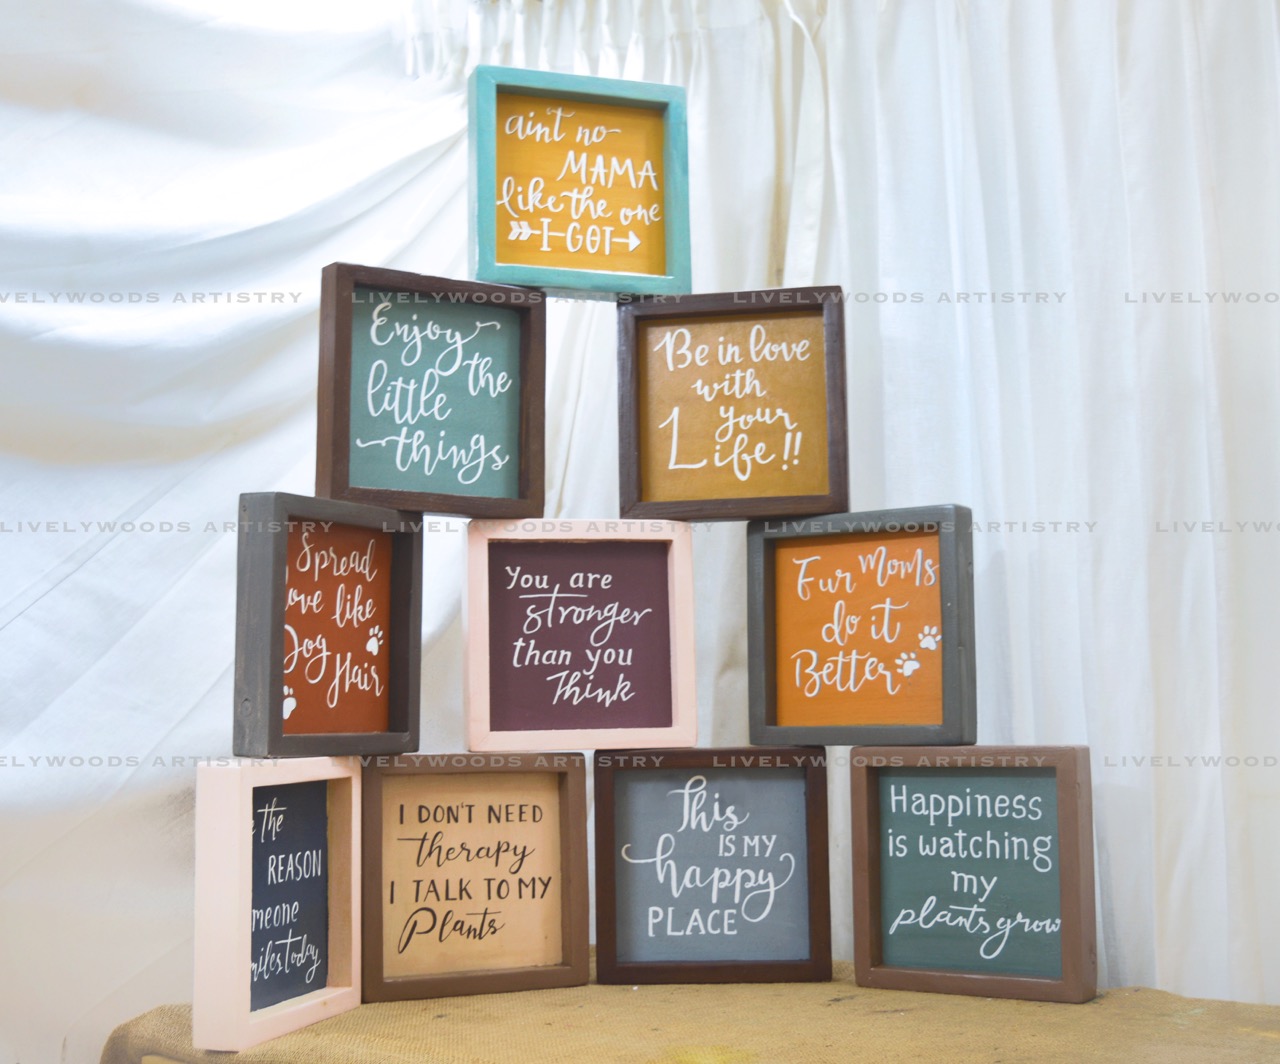 ain't no
MAMA
like the one
I GOT
LIVELYWOODS ARTISTRY
LIVELYWOODS ARTISTRY
LIVELYWOODS ARTISTRY
Enjoy
the
little
things
Be in love
with
your
Life!!
LIVELYWOODS ARTISTRY
LIVELYWOODS ARTISTRY
LIVELYWOODS ARTISTRY
Spread
ove like
Dog
Hair
You are
stronger
than you
Think
Fur Moms
do it
Better
LIVELYWOODS ARTISTRY
LIVELYWOODS ARTISTRY
LIVELYWOODS ARTISTRY
the
REASON
meone
miles today
I DON'T NEED
therapy
I TALK TO MY
Plants
This
IS MY
happy
PLACE
Happiness
is watching
my
plants grow